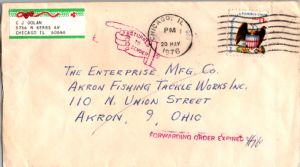 C J DOLAN
CHICAGO IL 60646
CHICAGO, IL
PM
20 MAY
1976
RETURNED TO SENDER
THE ENTERPRISE MFG. CO.
AKRON FISHING TACKLE WORKS INC.
110 N. UNION STREET
AKRON, 9, OHIO
FORWARDING ORDER EXPIRED